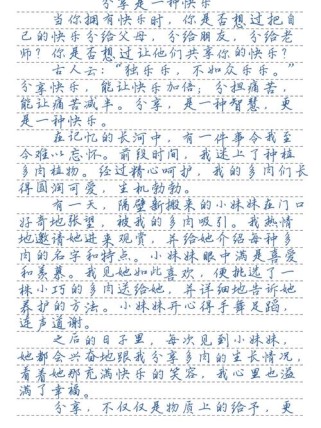 分享是一种快乐
当你拥有快乐时，你是否想过把自
己的快乐分给父母，分给朋友，分给老
师？你是否想过让他们共享你的快乐？
古人云：“独乐乐，不如众乐乐。”
分享快乐，能让快乐加倍；分担痛苦，
能让痛苦减半。分享，是一种智慧，更
是一种快乐。
在记忆的长河中，有一件事令我至
今难以忘怀。前段时间，我迷上了种植
多肉植物。经过精心呵护，我的多肉们长
得圆润可爱，生机勃勃。
有一天，隔壁新搬来的小妹妹在门口
好奇地张望，被我的多肉吸引。我热情
地邀请她进来观赏，并给她介绍每种多
肉的名字和特点。小妹妹眼中满是喜爱
和羡慕。我见她如此喜欢，便挑选了一
株小巧的多肉送给她，并详细地告诉她
养护的方法。小妹妹开心得手舞足蹈，
连声道谢。
之后的日子里，每次见到小妹妹，
她都会兴奋地跟我分享多肉的生长情况，
看着她那充满快乐的笑容，我心里也溢
满了幸福。
分享，不仅仅是物质上的给予，更